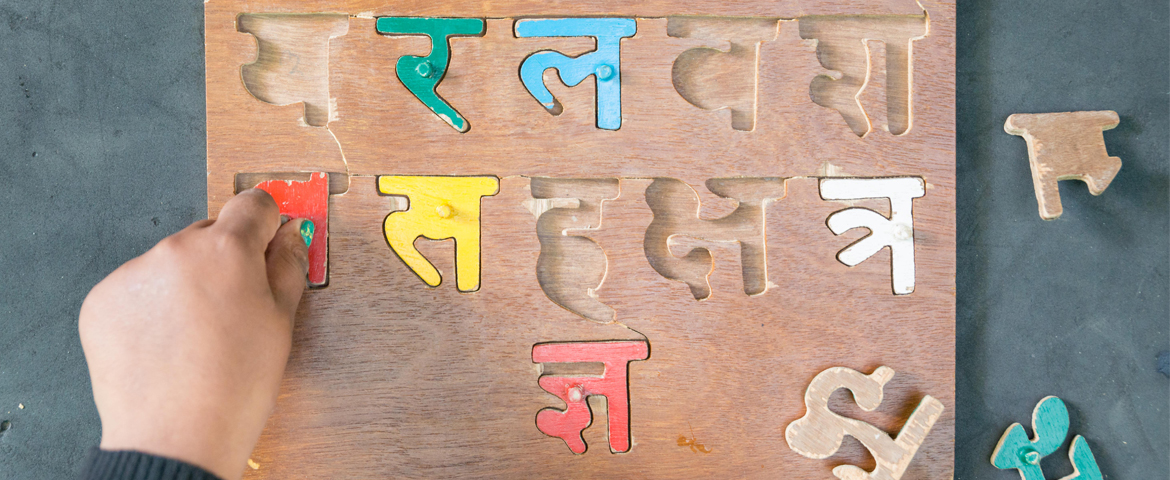 य र ल व श
ष स ह क्ष त्र
ज्ञ